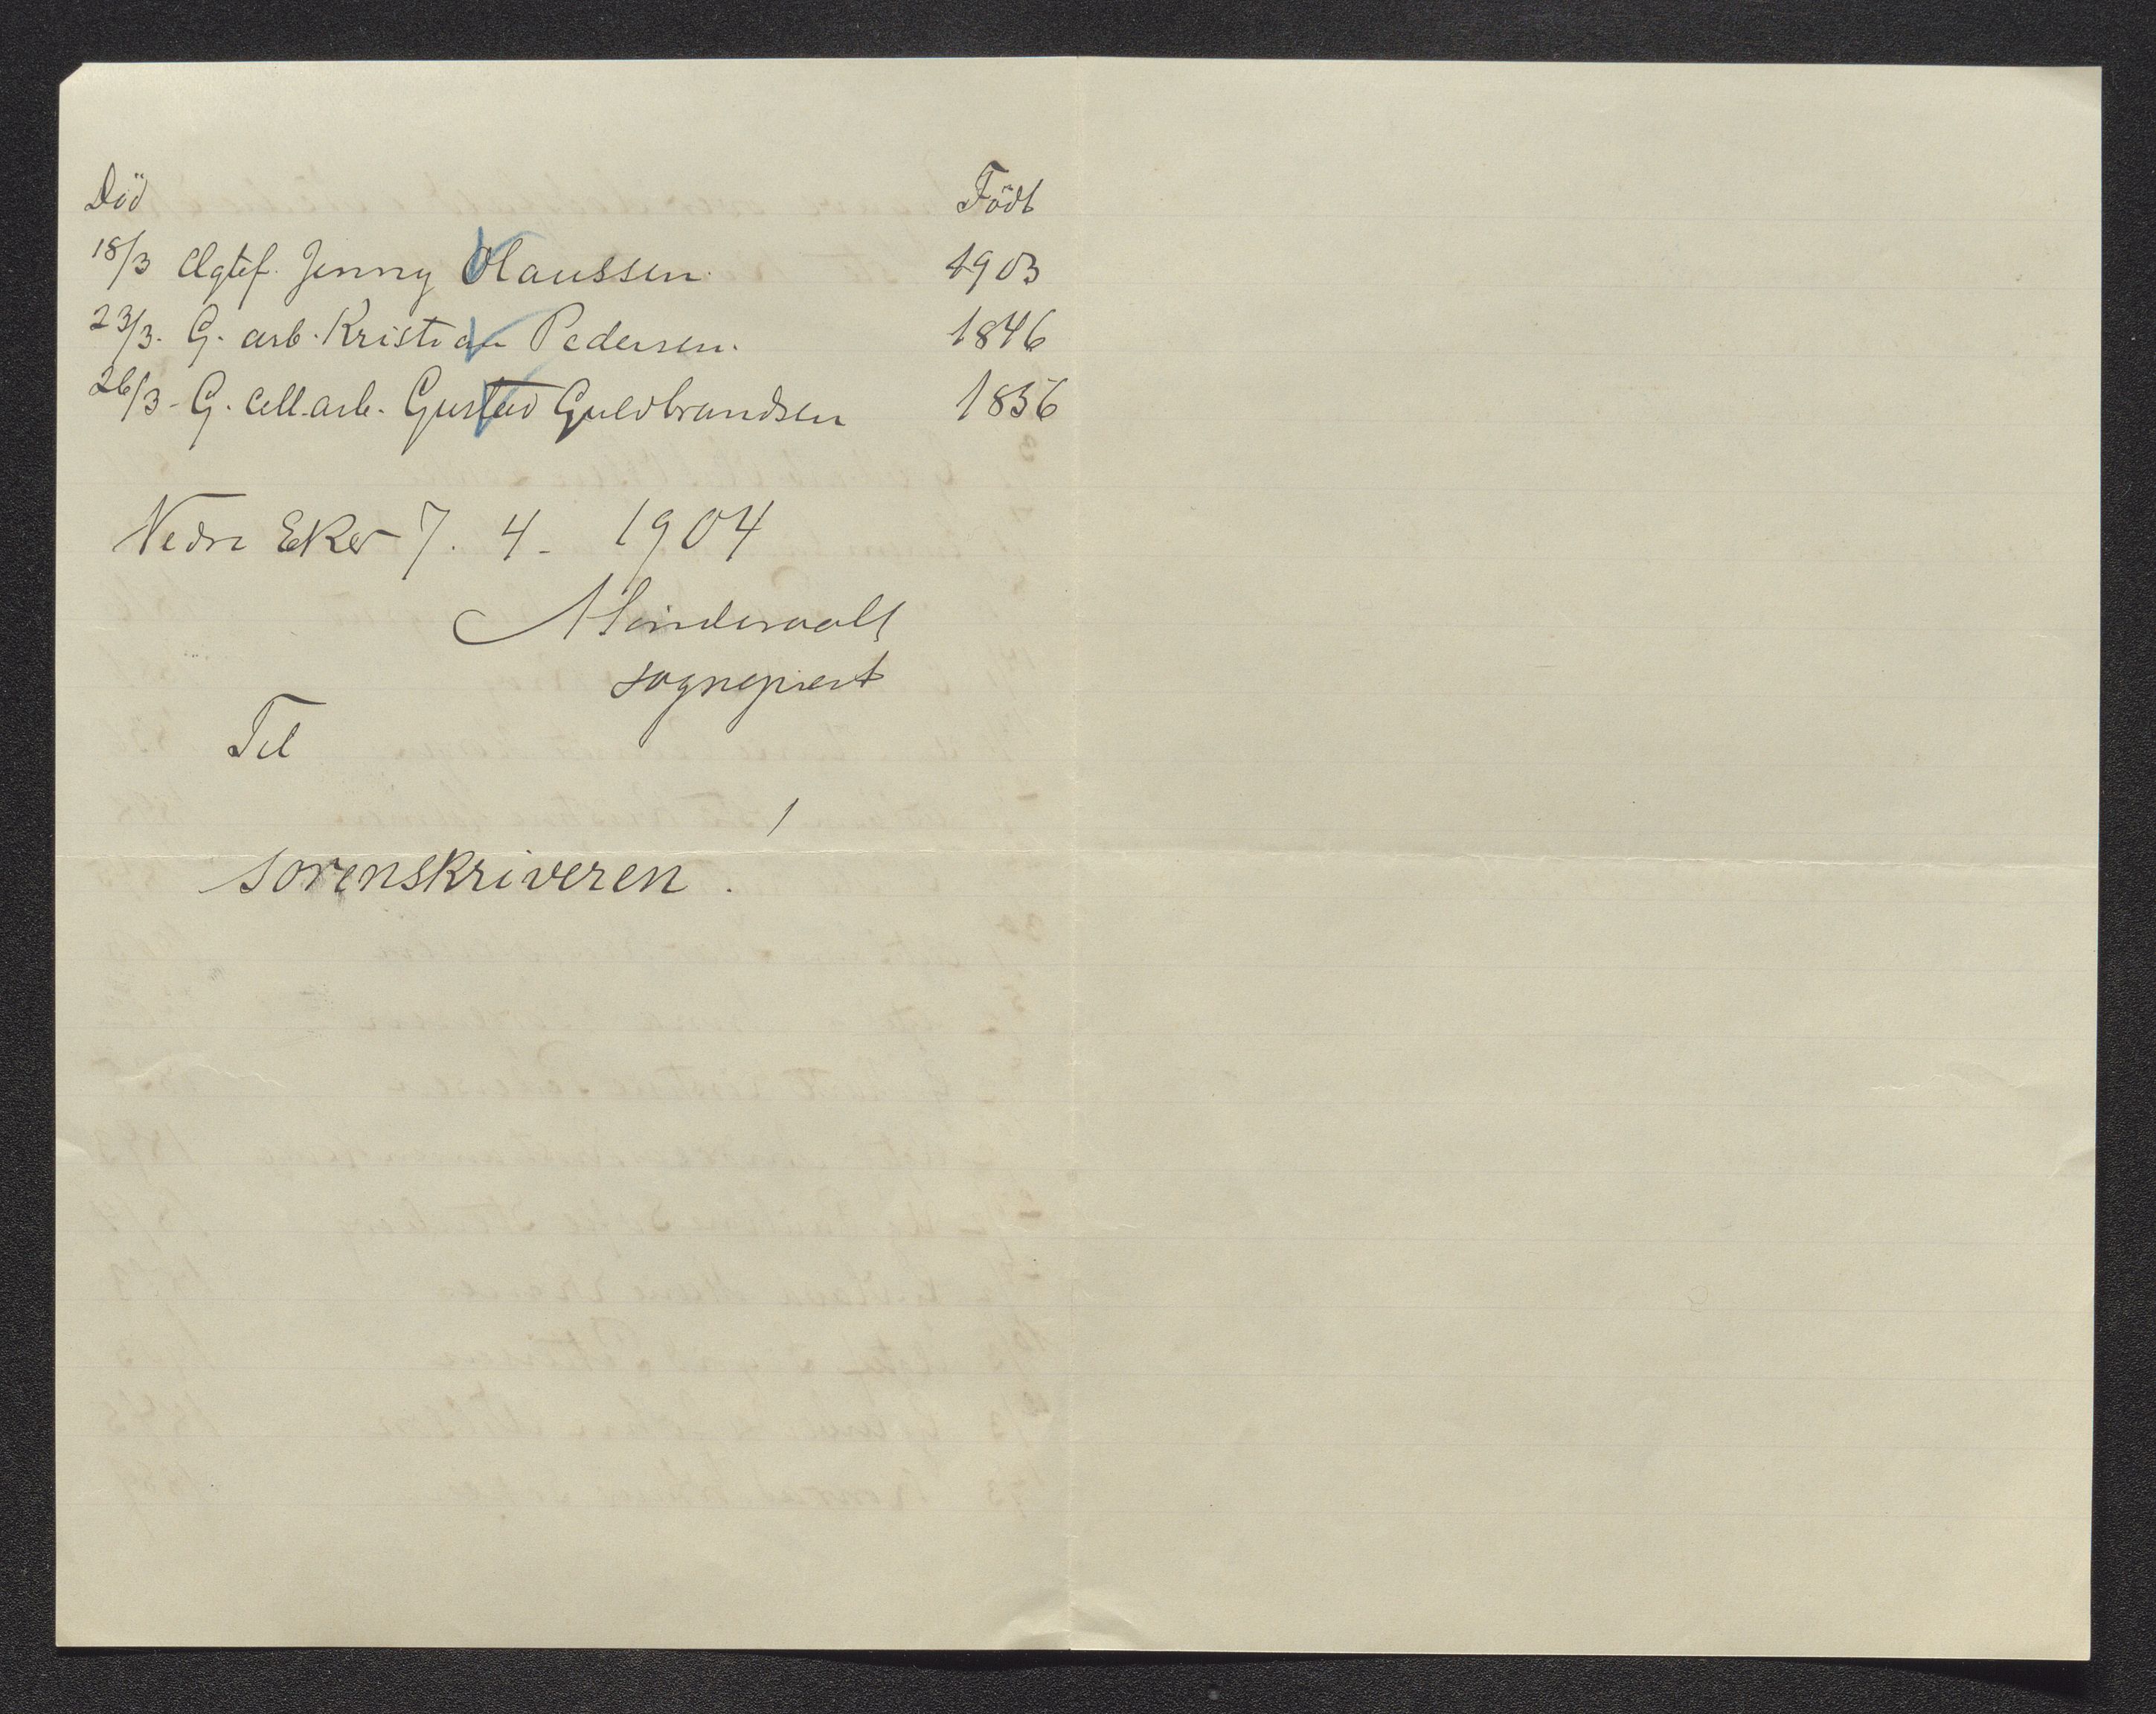 Död Födt
18/3 Ægtef. Jenny Olaussen. 1903
23/3. G. arb. Kristian Pedersen. 1846
26/3- G. cell.arb. Gustav Guldbrandsen 1856
Nedre Eker 7. 4. 1904
sogneprest
Til
sorenskriveren.